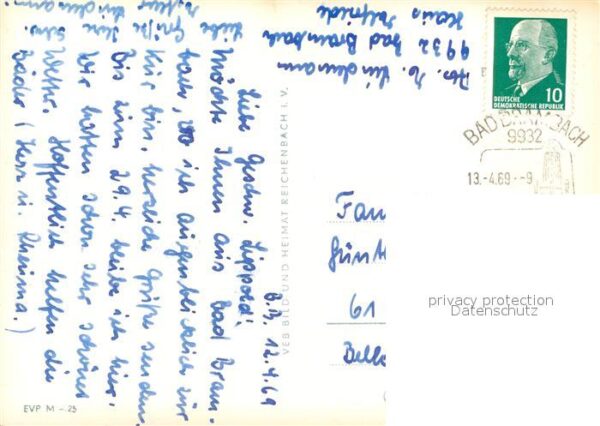 B.B. 12.4.69
Liebe Geschw. Lippold!
Möchte Ihnen aus Bad Bram-
bach, wo ich augenblicklich zur
Kur bin, herzliche Grüße senden.
Bis zum 29.4. bleibe ich hier.
Wir hatten schon sehr schönes
Wetter. Hoffentlich helfen die
Bäder (Herz u. Rheuma.)
Liebe
Grüße
Ihre
Abs. Lindemann
9932 Bad Brambach
Haus
VEB BILD UND HEIMAT REICHENBACH I. V.
EVP M -.25
10
DEUTSCHE
DEMOKRATISCHE REPUBLIK
BAD BRAMBACH
9932
13.-4.69.--9
Fam
Günt
61
privacy protection
Datenschutz